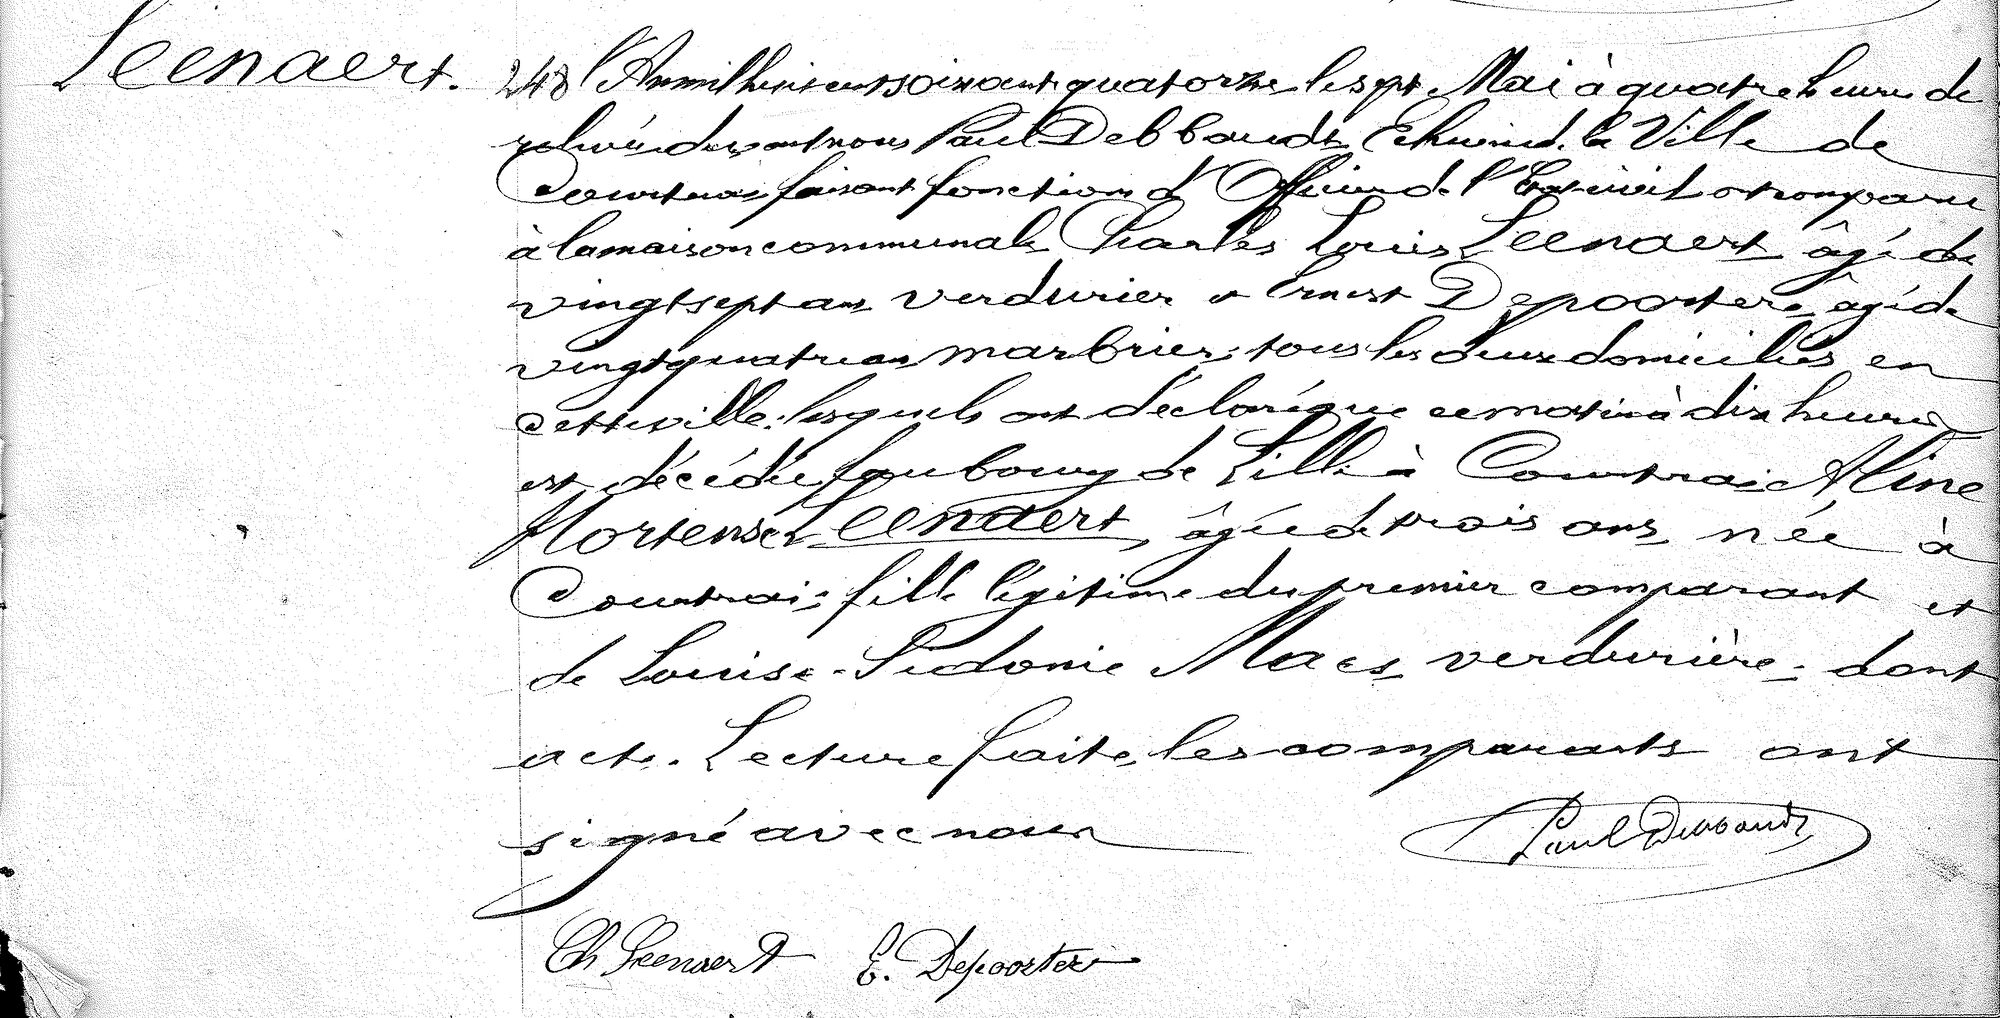 Leenaert.
248 L'An mil huit cent soixante quatorze le sept Mai à quatre heures de
relevée devant nous Paul Debbaudt Echevin de la Ville de
Courtrai faisant fonctions d'Officier de l'Etat civil ont comparu
à la maison communale Charles Louis Leenaert âgé de
vingt sept ans verdurier et Ernest Depoortere âgé de
vingt quatre ans marbrier, tous les deux domiciliés en
cette ville. lesquels ont déclaré que ce matin à dix heures
est décédée faubourg de Lille à Courtrai Aline
Hortense Leenaert, âgée de trois ans née à
Courtrai, fille légitime du premier comparant et
de Louise-Sidonie Maes, verdurière; dont
acte. Lecture faite, les comparants ont
signé avec nous
Paul Debbaudt
Ch Leenaert E. Depoortere